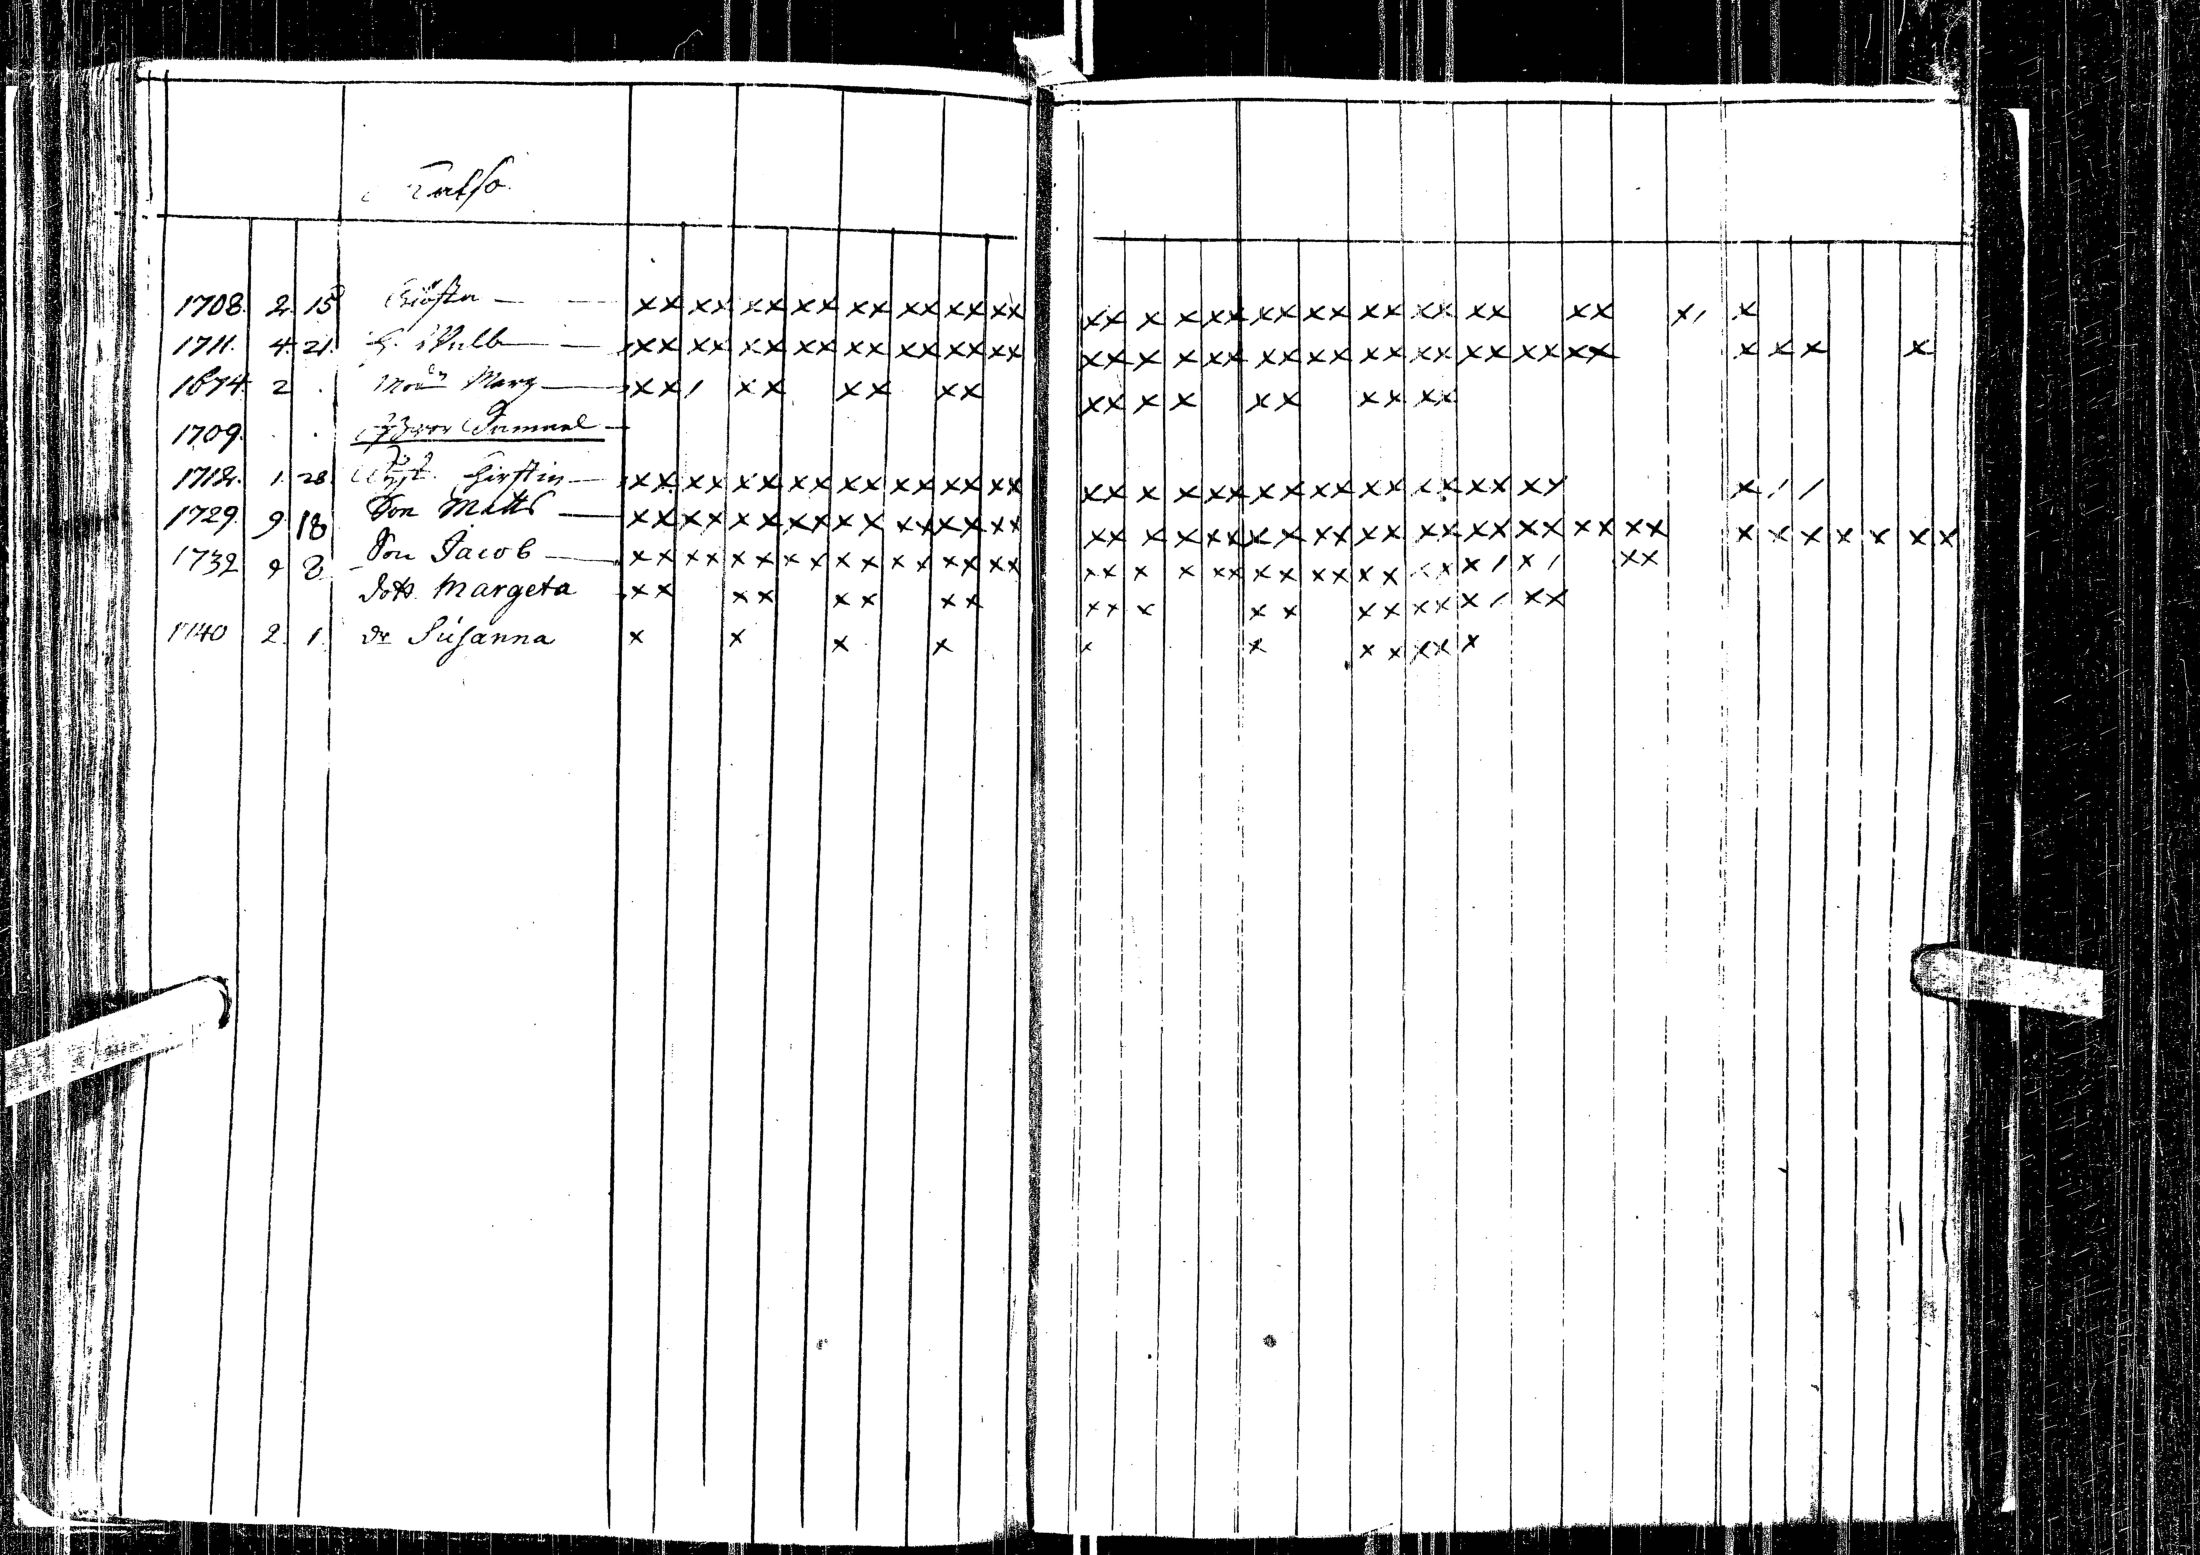 1708. 2. 15 — xx xx xx xx xx xx xx xx xx x x xx xx xx xx xx xx xx x/ x
1711. 4. 21. H. Walb — xx xx xx xx xx xx xx xx xx x x xx xx xx xx xx xx xx xx x x x x
1674. 2 Modn Marg — xx/ xx xx xx xx x x xx xx xx
1709. Bror Samuel —
1712. 1. 28. Hust. Kirstin — xx xx xx xx xx xx xx xx xx x x xx xx xx xx xx xx xx x / /
1729. 9 18 Son Matts — xx xx xx xx xx xx xx xx xx x x xx xx xx xx xx xx xx xx xx x x x x x x x
1732 9 8 Son Jacob — xx xx xx xx xx xx xx xx xx x x xx xx xx xx xx x/ x/ xx
dott. Margeta xx xx xx xx xx x xx xx xx x/ xx
1740 2. 1. Dr Susanna x x x x x x xx xx x